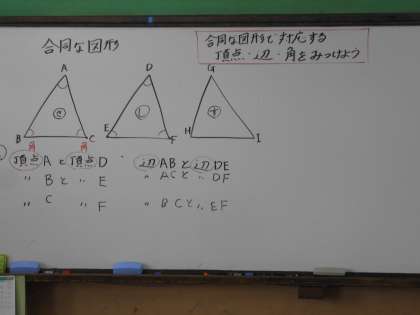 合同な図形
合同な図形で対応する
頂点・辺・角をみつけよう
A
D
G
B
C
E
F
H
I
角
角
頂点Aと頂点D
辺ABと辺DE
〃 Bと 〃 E
〃 ACと 〃 DF
〃 C 〃 F
〃 BCと 〃 EF